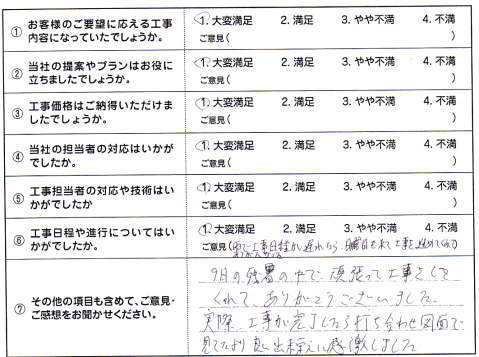 ① お客様のご要望に応える工事内容になっていたでしょうか。
1. 大変満足 2. 満足 3. やや不満 4. 不満
ご意見( )
② 当社の提案やプランはお役に立ちましたでしょうか。
1. 大変満足 2. 満足 3. やや不満 4. 不満
ご意見( )
③ 工事価格はご納得いただけましたでしょうか。
1. 大変満足 2. 満足 3. やや不満 4. 不満
ご意見( )
④ 当社の担当者の対応はいかがでしたか。
1. 大変満足 2. 満足 3. やや不満 4. 不満
ご意見( )
⑤ 工事担当者の対応や技術はいかがでしたか
1. 大変満足 2. 満足 3. やや不満 4. 不満
ご意見( )
⑥ 工事日程や進行についてはいかがでしたか。
1. 大変満足 2. 満足 3. やや不満 4. 不満
ご意見(雨で工事日程が遅れたら、日曜日も来て工事を進めてくれて)
⑦ その他の項目も含めて、ご意見・ご感想をお聞かせください。
9月の残暑の中で、頑張って工事をして
くれて、ありがとうございました。
実際、工事が完了したら打ち合わせ図面で
見てたより良い出来栄えに感激しました